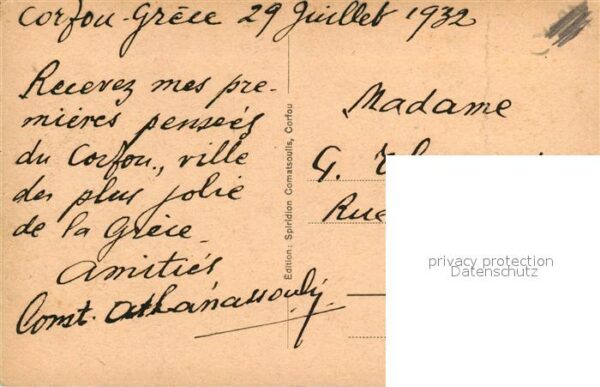 Corfou-Grèce 29 Juillet 1932
Recevez mes pre-
mières pensées
du Corfou, ville
des plus jolie
de la Grèce
Amitiés
Const. Athanassouly
Edition: Spiridion Comatsoulis, Corfou
Madame
G.
Rue
privacy protection
Datenschutz